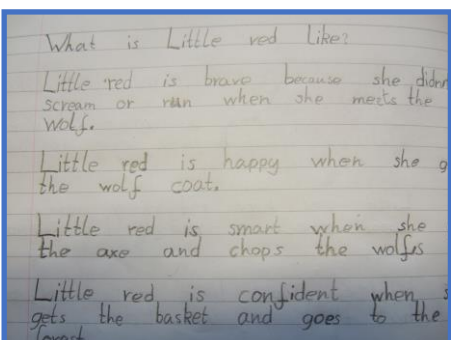 What is Little red like?
Little red is brave because she
scream or run when she meets the
wolf.
Little red is happy when she
the wolf coat.
Little red is smart when she
the axe and chops the wolfs
Little red is confident when
gets the basket and goes to the